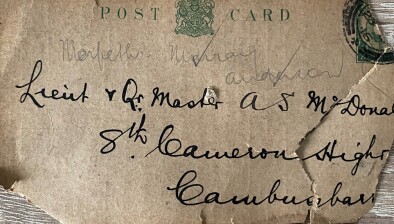 POST CARD
Murray
Lieut & Qr. Master A S McDonal
8th Cameron Highr
Cambusbarr